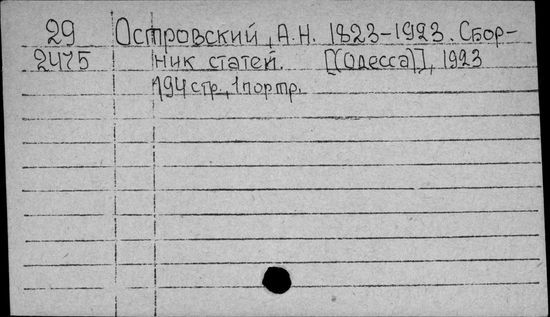 29 Островский, А.Н. 1823-1923. Сбор-
2475 ник статей. [[Одесса]], 1923
194 стр., 1 портр.